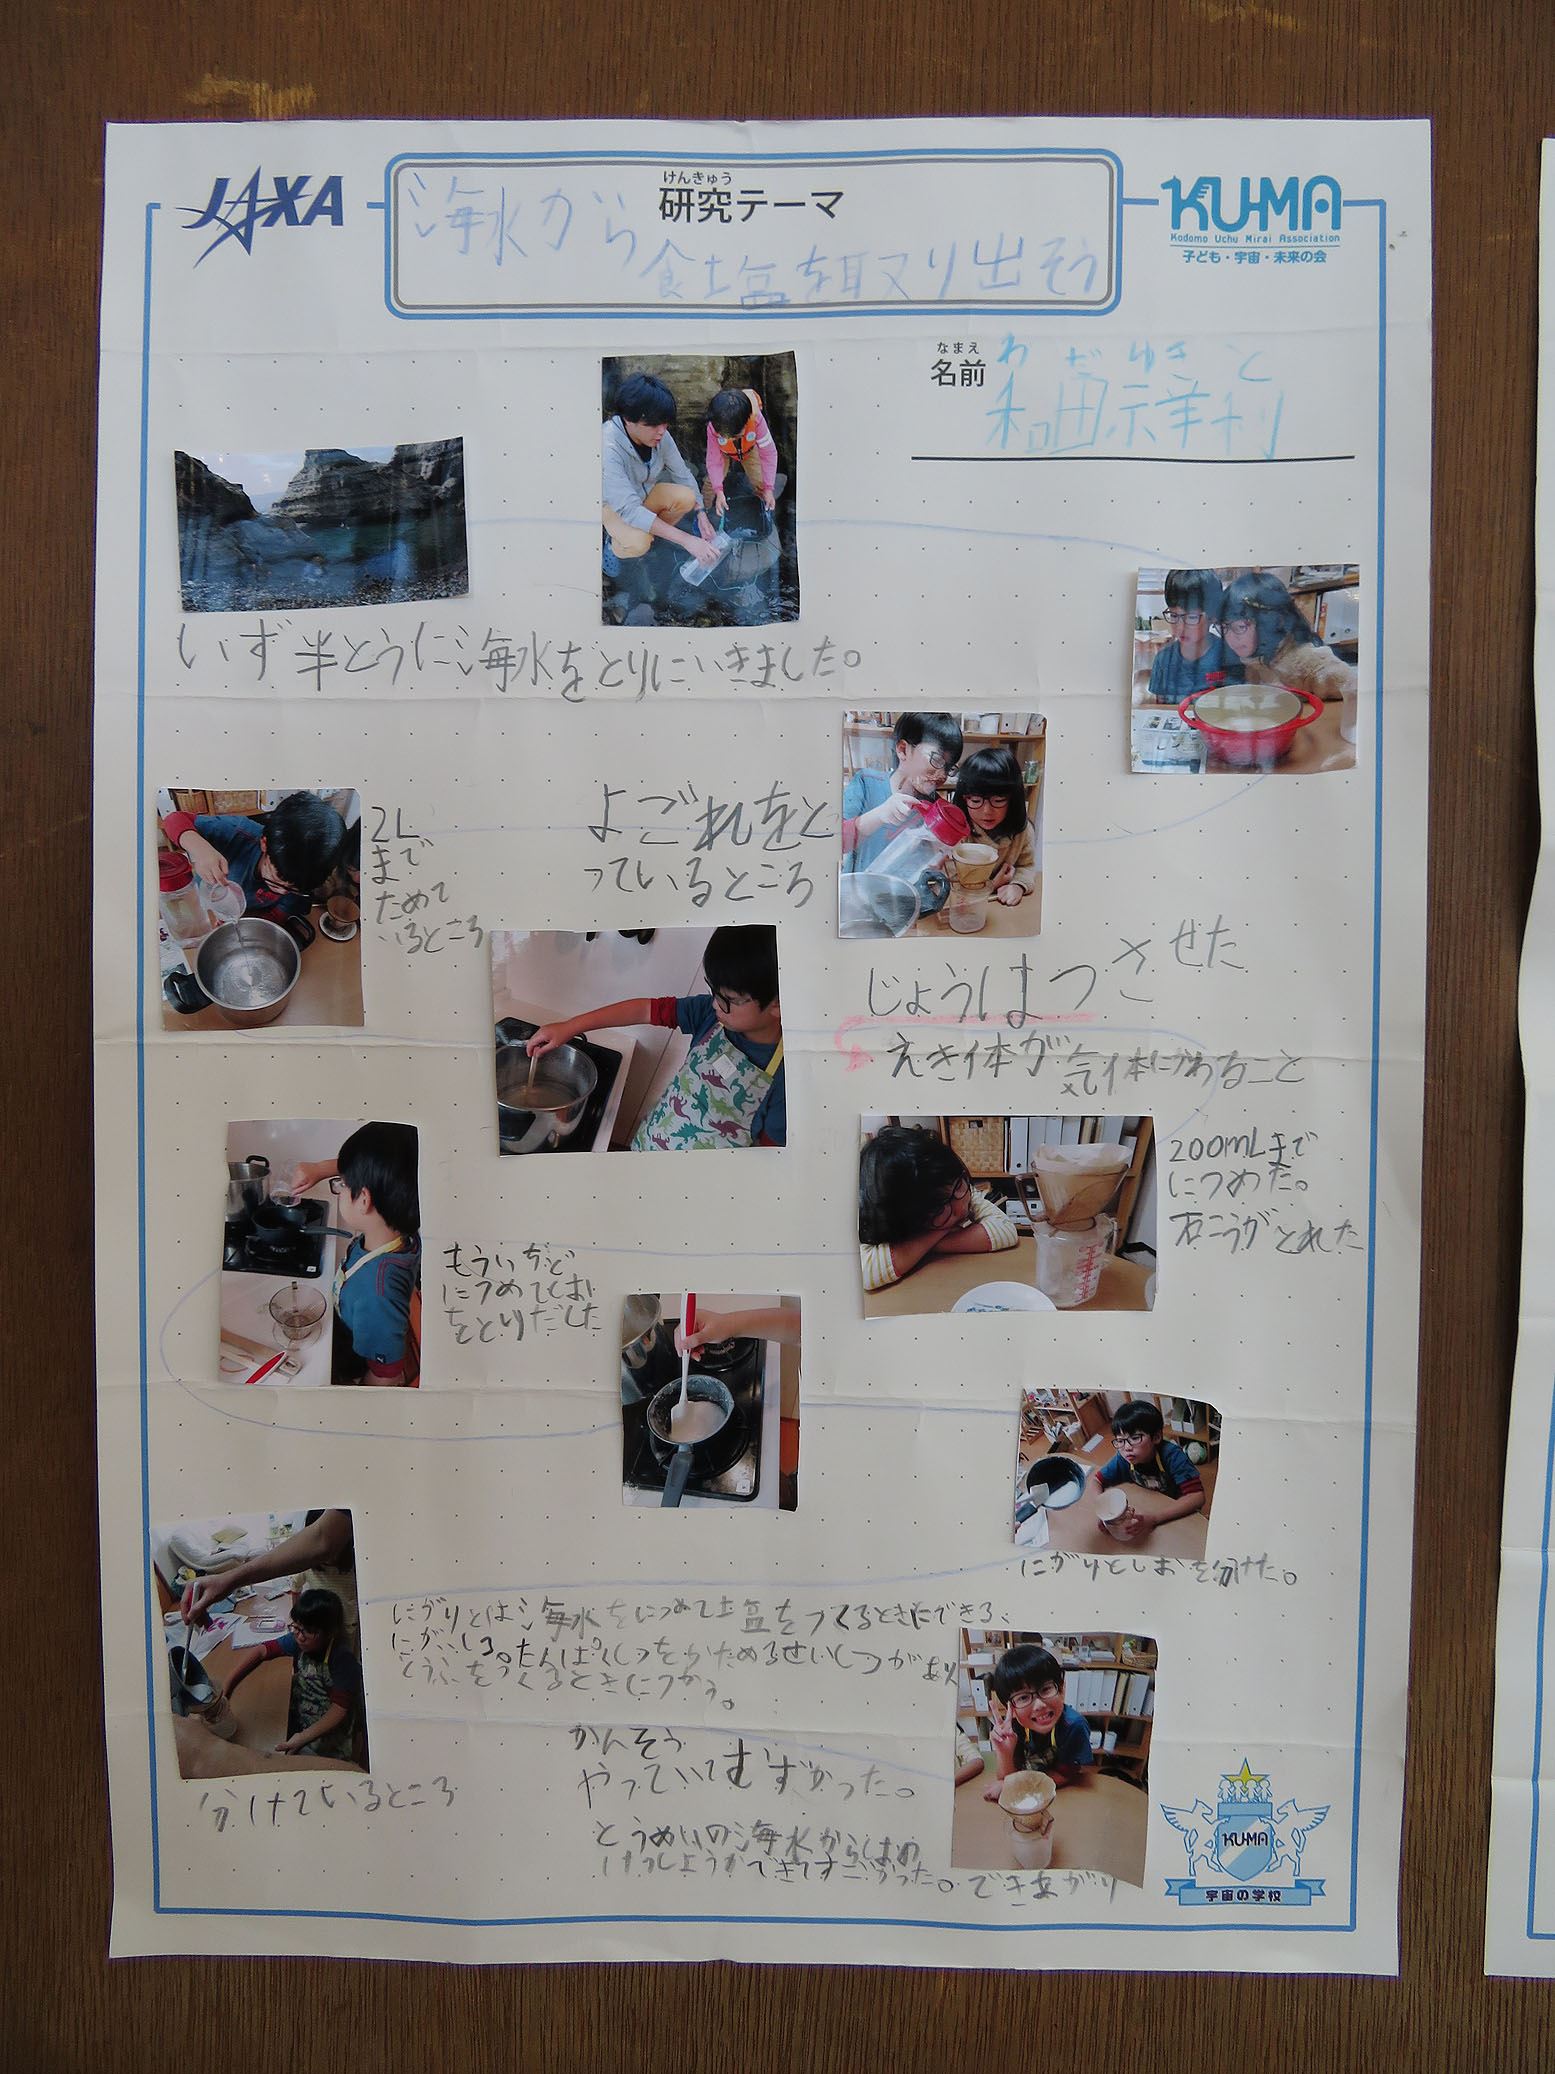 JAXA
けんきゅう
研究テーマ
海水から
食塩を取り出そう
KU-MA
Kodomo Uchu Mirai Association
子ども・宇宙・未来の会
なまえ
名前
わだ ゆきと
和田祥利
いず半とうに海水をとりにいきました。
2L
まで
ためて
いるところ
よごれをと
っているところ
じょうはつさせた
えき体が気体にかわること
200mLまで
につめた。
石こうがとれた
もういちど
につめてしお
をとりだした
にがりとしおを分けた。
にがりとは海水をにつめて塩をつくるときにできる、
にがいしる。たんぱくしつをかためるせいしつがあり
とうふをつくるときにつかう。
分けているところ
かんそう
やっていてむずかった。
とうめいの海水からしおの
けっしょうができてすごかった。
できあがり
KU-MA
宇宙の学校